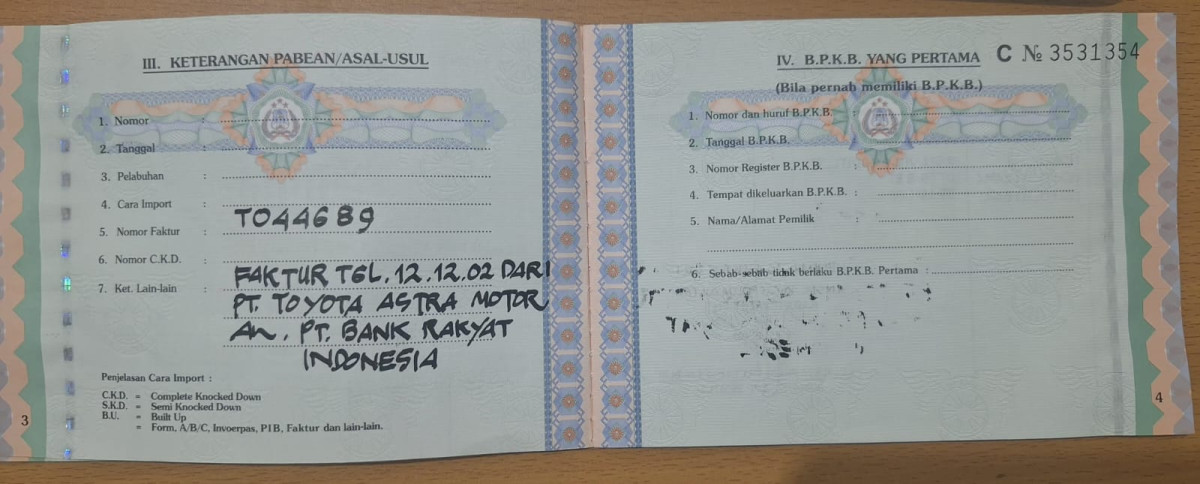 III. KETERANGAN PABEAN/ASAL-USUL
1. Nomor :
2. Tanggal :
3. Pelabuhan :
4. Cara Import :
TO44689
5. Nomor Faktur :
6. Nomor C.K.D. :
FAKTUR TGL. 12.12.02 DARI
7. Ket. Lain-lain :
PT. TOYOTA ASTRA MOTOR
An. PT. BANK RAKYAT
INDONESIA
Penjelasan Cara Import :
C.K.D. = Complete Knocked Down
S.K.D. = Semi Knocked Down
B.U. = Built Up
= Form, A/B/C, Invoerpas, PIB, Faktur dan lain-lain.
3
IV. B.P.K.B. YANG PERTAMA
C № 3531354
(Bila pernah memiliki B.P.K.B.)
1. Nomor dan huruf B.P.K.B. :
2. Tanggal B.P.K.B. :
3. Nomor Register B.P.K.B. :
4. Tempat dikeluarkan B.P.K.B. :
5. Nama/Alamat Pemilik :
6. Sebab-sebab tidak berlaku B.P.K.B. Pertama :
4